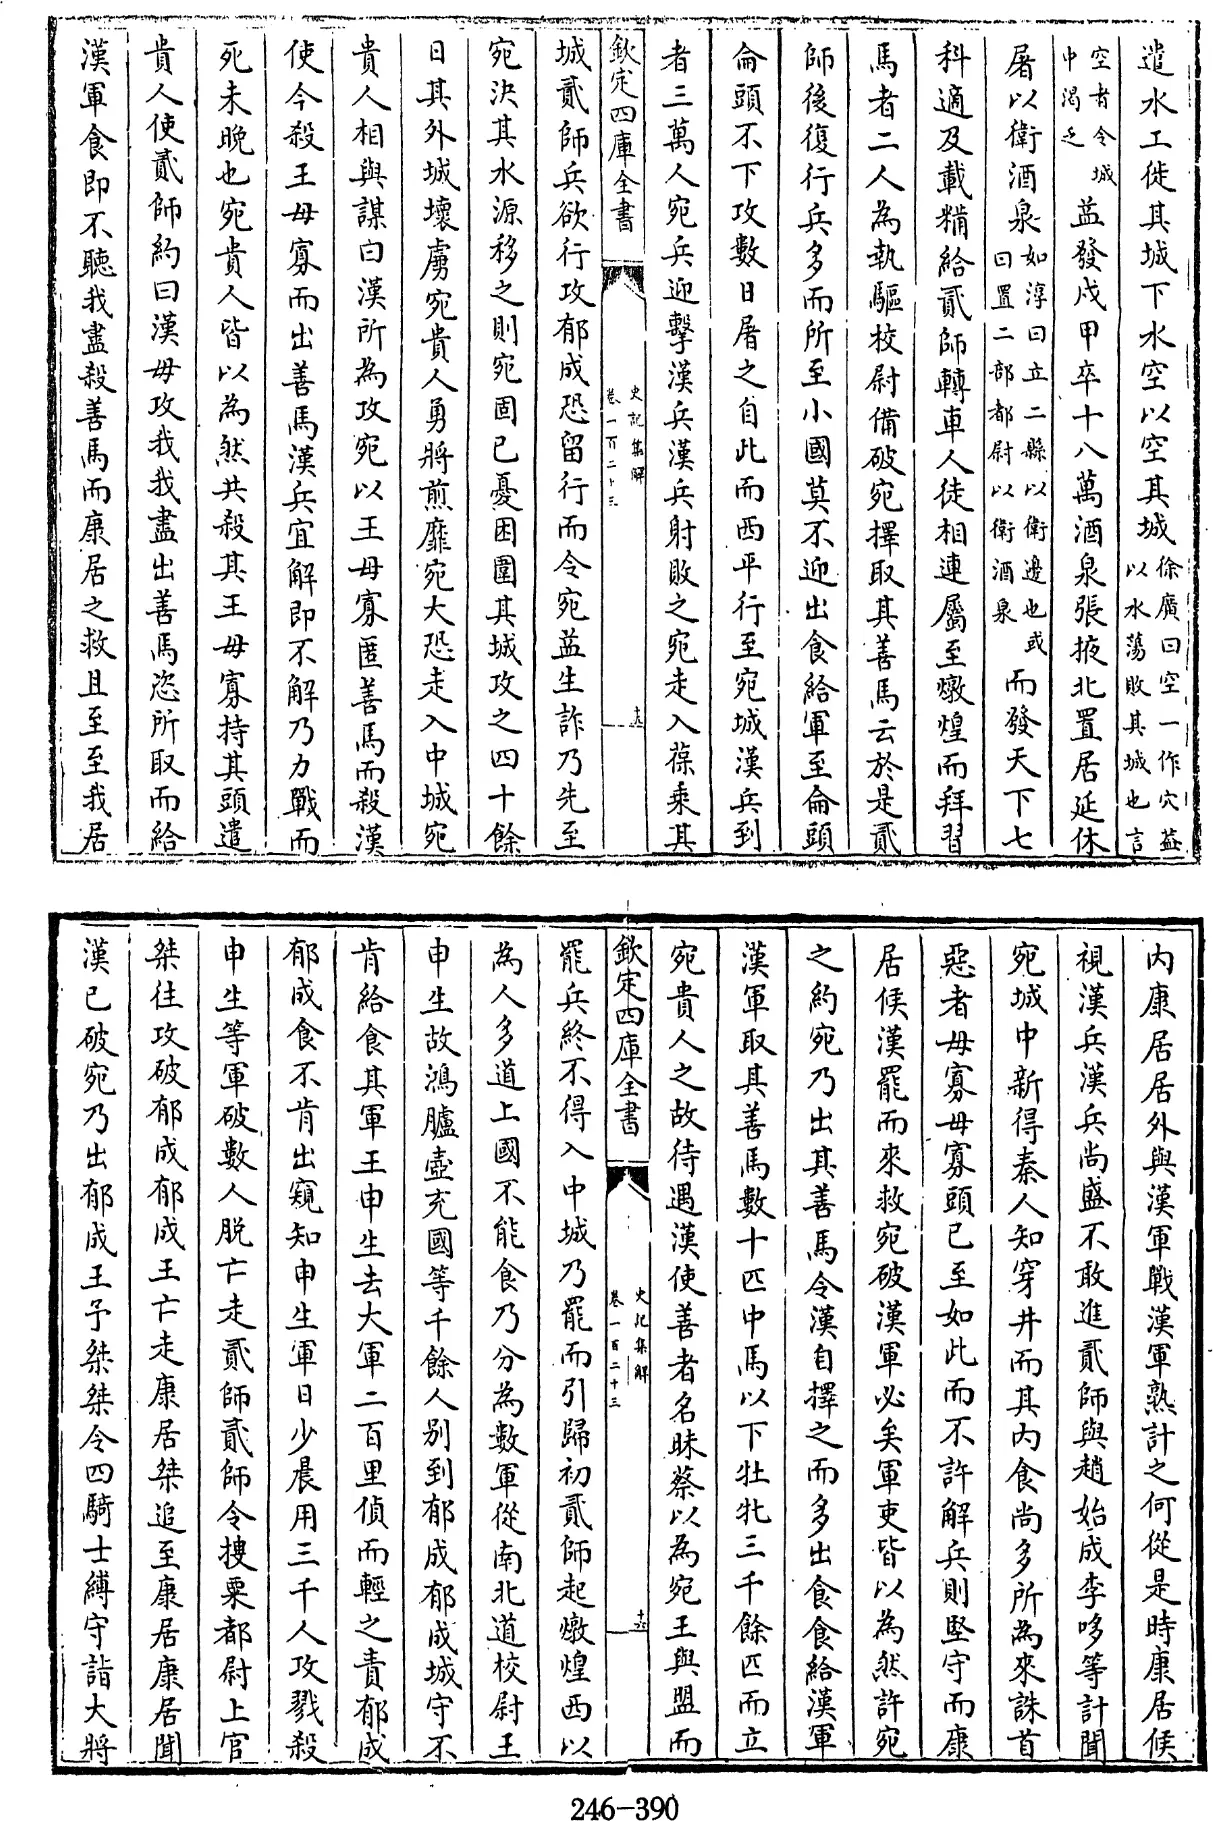 遣水工徙其城下水空以空其城徐廣曰空一作穴葢以水蕩敗其城也言
空者令城中渴乏葢發戍甲卒十八萬酒泉張掖北置居延休
屠以衛酒泉如淳曰立二縣以衛邊也或曰置二部都尉以衛酒泉而發天下七
科適及載糒給貳師轉車人徒相連屬至燉煌而拜習
馬者二人為執驅校尉備破宛擇取其善馬云於是貳
師後復行兵多而所至小國莫不迎出食給軍至侖頭
侖頭不下攻數日屠之自此而西平行至宛城漢兵到
者三萬人宛兵迎擊漢兵漢兵射敗之宛走入葆乗其
欽定四庫全書
史記集解
卷一百二十三
城貳師兵欲行攻郁成恐留行而令宛葢生詐乃先至
宛決其水源移之則宛固已憂困圍其城攻之四十餘
日其外城壞虜宛貴人勇將煎靡宛大恐走入中城宛
貴人相與謀曰漢所為攻宛以王毋寡匿善馬而殺漢
使今殺王毋寡而出善馬漢兵宜解即不解乃力戰而
死未晚也宛貴人皆以為然共殺其王毋寡持其頭遣
貴人使貳師約曰漢毋攻我我盡出善馬恣所取而給
漢軍食即不聽我盡殺善馬而康居之救且至至我居
内康居居外與漢軍戰漢軍熟計之何從是時康居候
視漢兵漢兵尚盛不敢進貳師與趙始成李哆等計聞
宛城中新得秦人知穿井而其内食尚多所為來誅首
惡者毋寡毋寡頭已至如此而不許解兵則堅守而康
居候漢罷而來救宛破漢軍必矣軍吏皆以為然許宛
之約宛乃出其善馬令漢自擇之而多出食食給漢軍
漢軍取其善馬數十匹中馬以下牡牝三千餘匹而立
宛貴人之故待遇漢使善者名昧蔡以為宛王與盟而
欽定四庫全書
史記集解
卷一百二十三
十六
罷兵終不得入中城乃罷而引歸初貳師起燉煌西以
為人多道上國不能食乃分為數軍從南北道校尉王
申生故鴻臚壺充國等千餘人别到郁成郁成城守不
肯給食其軍王申生去大軍二百里偵而輕之責郁成
郁成食不肯出窺知申生軍日少晨用三千人攻戮殺
申生等軍破數人脱亡走貳師貳師令搜粟都尉上官
桀往攻破郁成郁成王亡走康居桀追至康居康居聞
漢已破宛乃出郁成王予桀桀令四騎士縛守詣大將
246-390